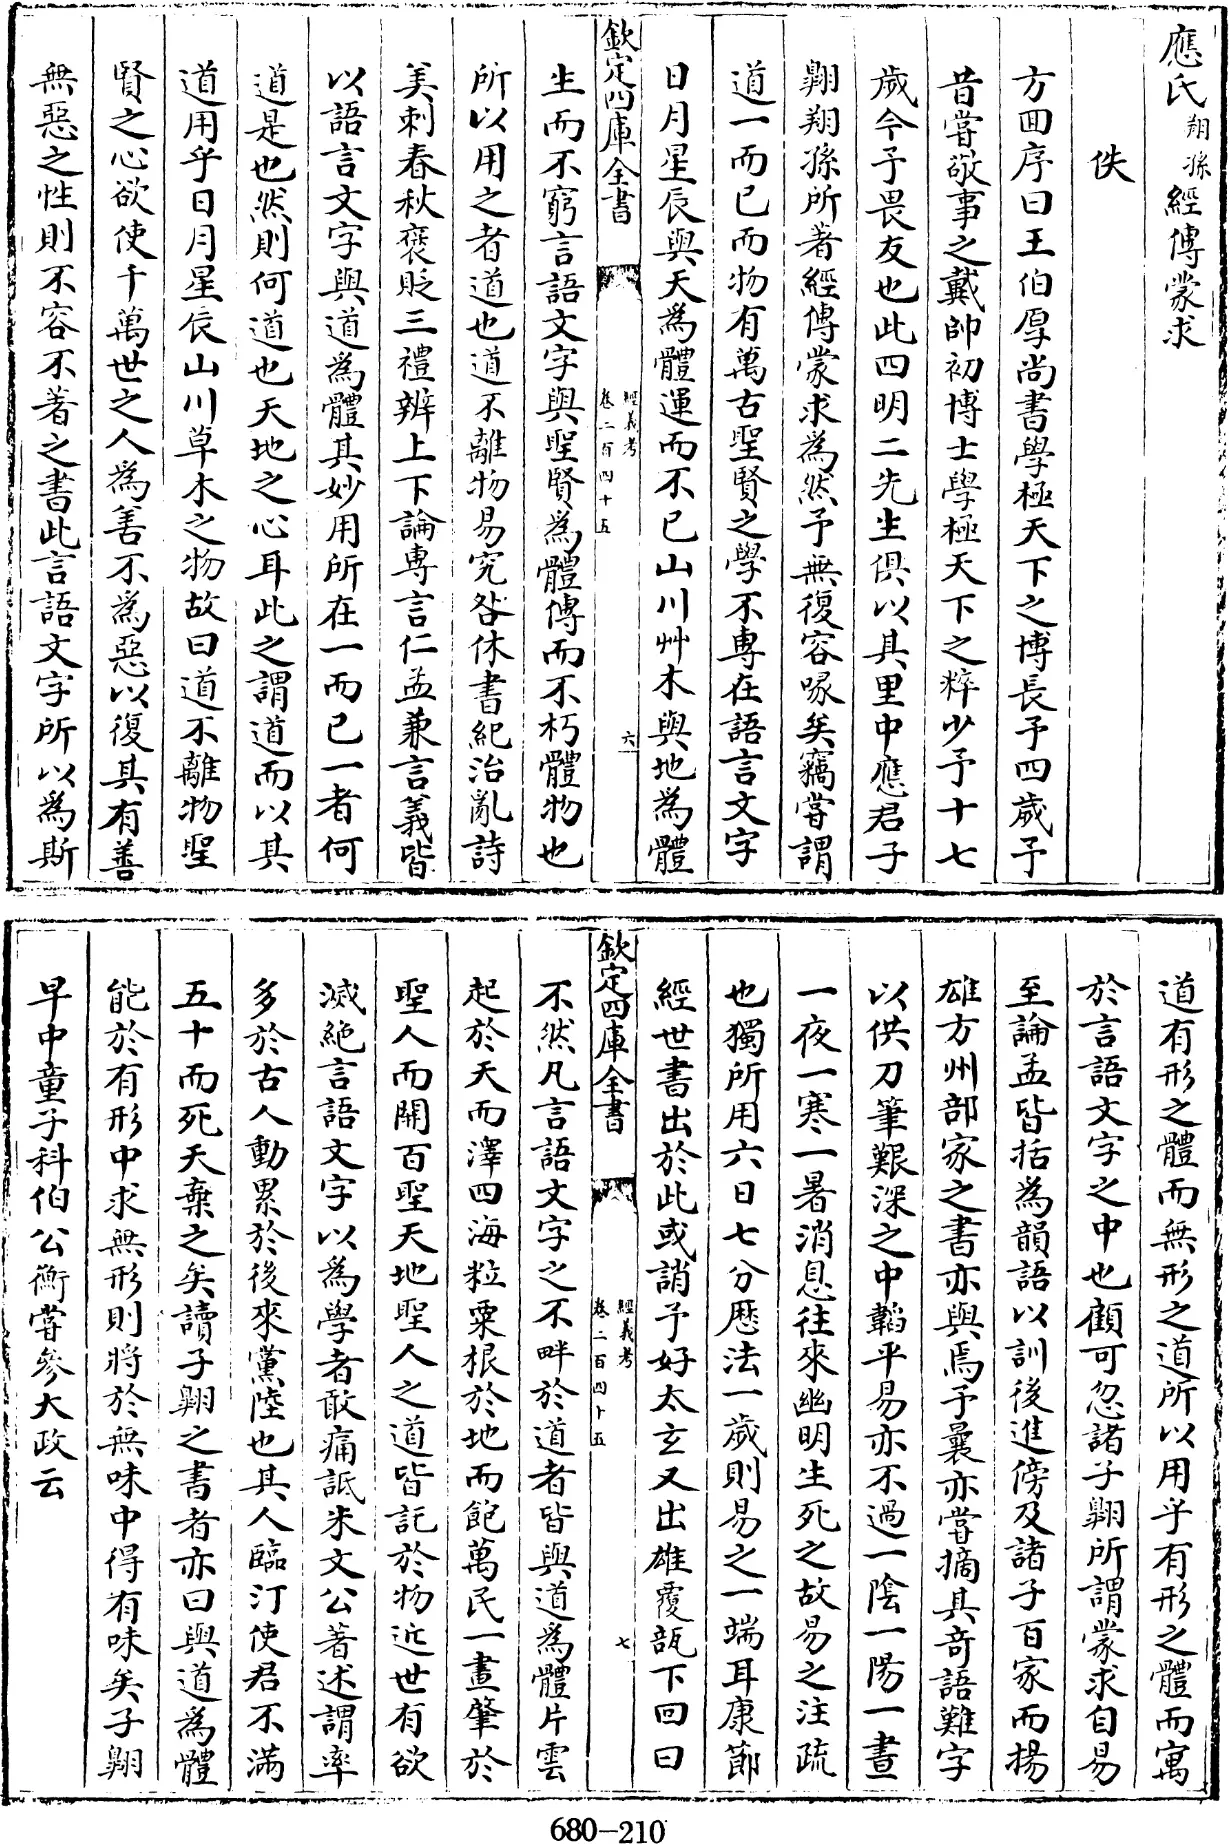 應氏翔孫經傳蒙求
佚
方回序曰王伯厚尚書學極天下之博長予四歲予
昔嘗敬事之戴帥初博士學極天下之粹少予十七
歲今予畏友也此四明二先生俱以其里中應君子
翺翔孫所著經傳蒙求為然予無復容喙矣竊嘗謂
道一而已而物有萬古聖賢之學不專在語言文字
日月星辰與天為體運而不已山川艸木與地為體
欽定四庫全書
經義考
卷二百四十五
六
生而不窮言語文字與聖賢為體傳而不朽體物也
所以用之者道也道不離物易究咎休書紀治亂詩
美刺春秋褒貶三禮辨上下論專言仁孟兼言義皆
以語言文字與道為體其妙用所在一而已一者何
道是也然則何道也天地之心耳此之謂道而以其
道用乎日月星辰山川草木之物故曰道不離物聖
賢之心欲使千萬世之人為善不為惡以復其有善
無惡之性則不容不著之書此言語文字所以為斯
道有形之體而無形之道所以用乎有形之體而寓
於言語文字之中也顧可忽諸子翺所謂蒙求自易
至論孟皆括為韻語以訓後進傍及諸子百家而揚
雄方州部家之書亦與焉予曩亦嘗摘其奇語難字
以供刀筆艱深之中韜平易亦不過一陰一陽一晝
一夜一寒一暑消息往來幽明生死之故易之注疏
也獨所用六日七分歷法一歲則易之一端耳康節
經世書出於此或誚予好太玄又出雄覆瓿下回曰
欽定四庫全書
經義考
卷二百四十五
七
不然凡言語文字之不畔於道者皆與道為體片雲
起於天而澤四海粒粟根於地而飽萬民一畫肇於
聖人而開百聖天地聖人之道皆託於物近世有欲
滅絶言語文字以為學者敢痛詆朱文公著述謂率
多於古人動累於後來黨陸也其人臨汀使君不滿
五十而死天棄之矣讀子翺之書者亦曰與道為體
能於有形中求無形則將於無味中得有味矣子翺
早中童子科伯公㒡嘗參大政云
680-210